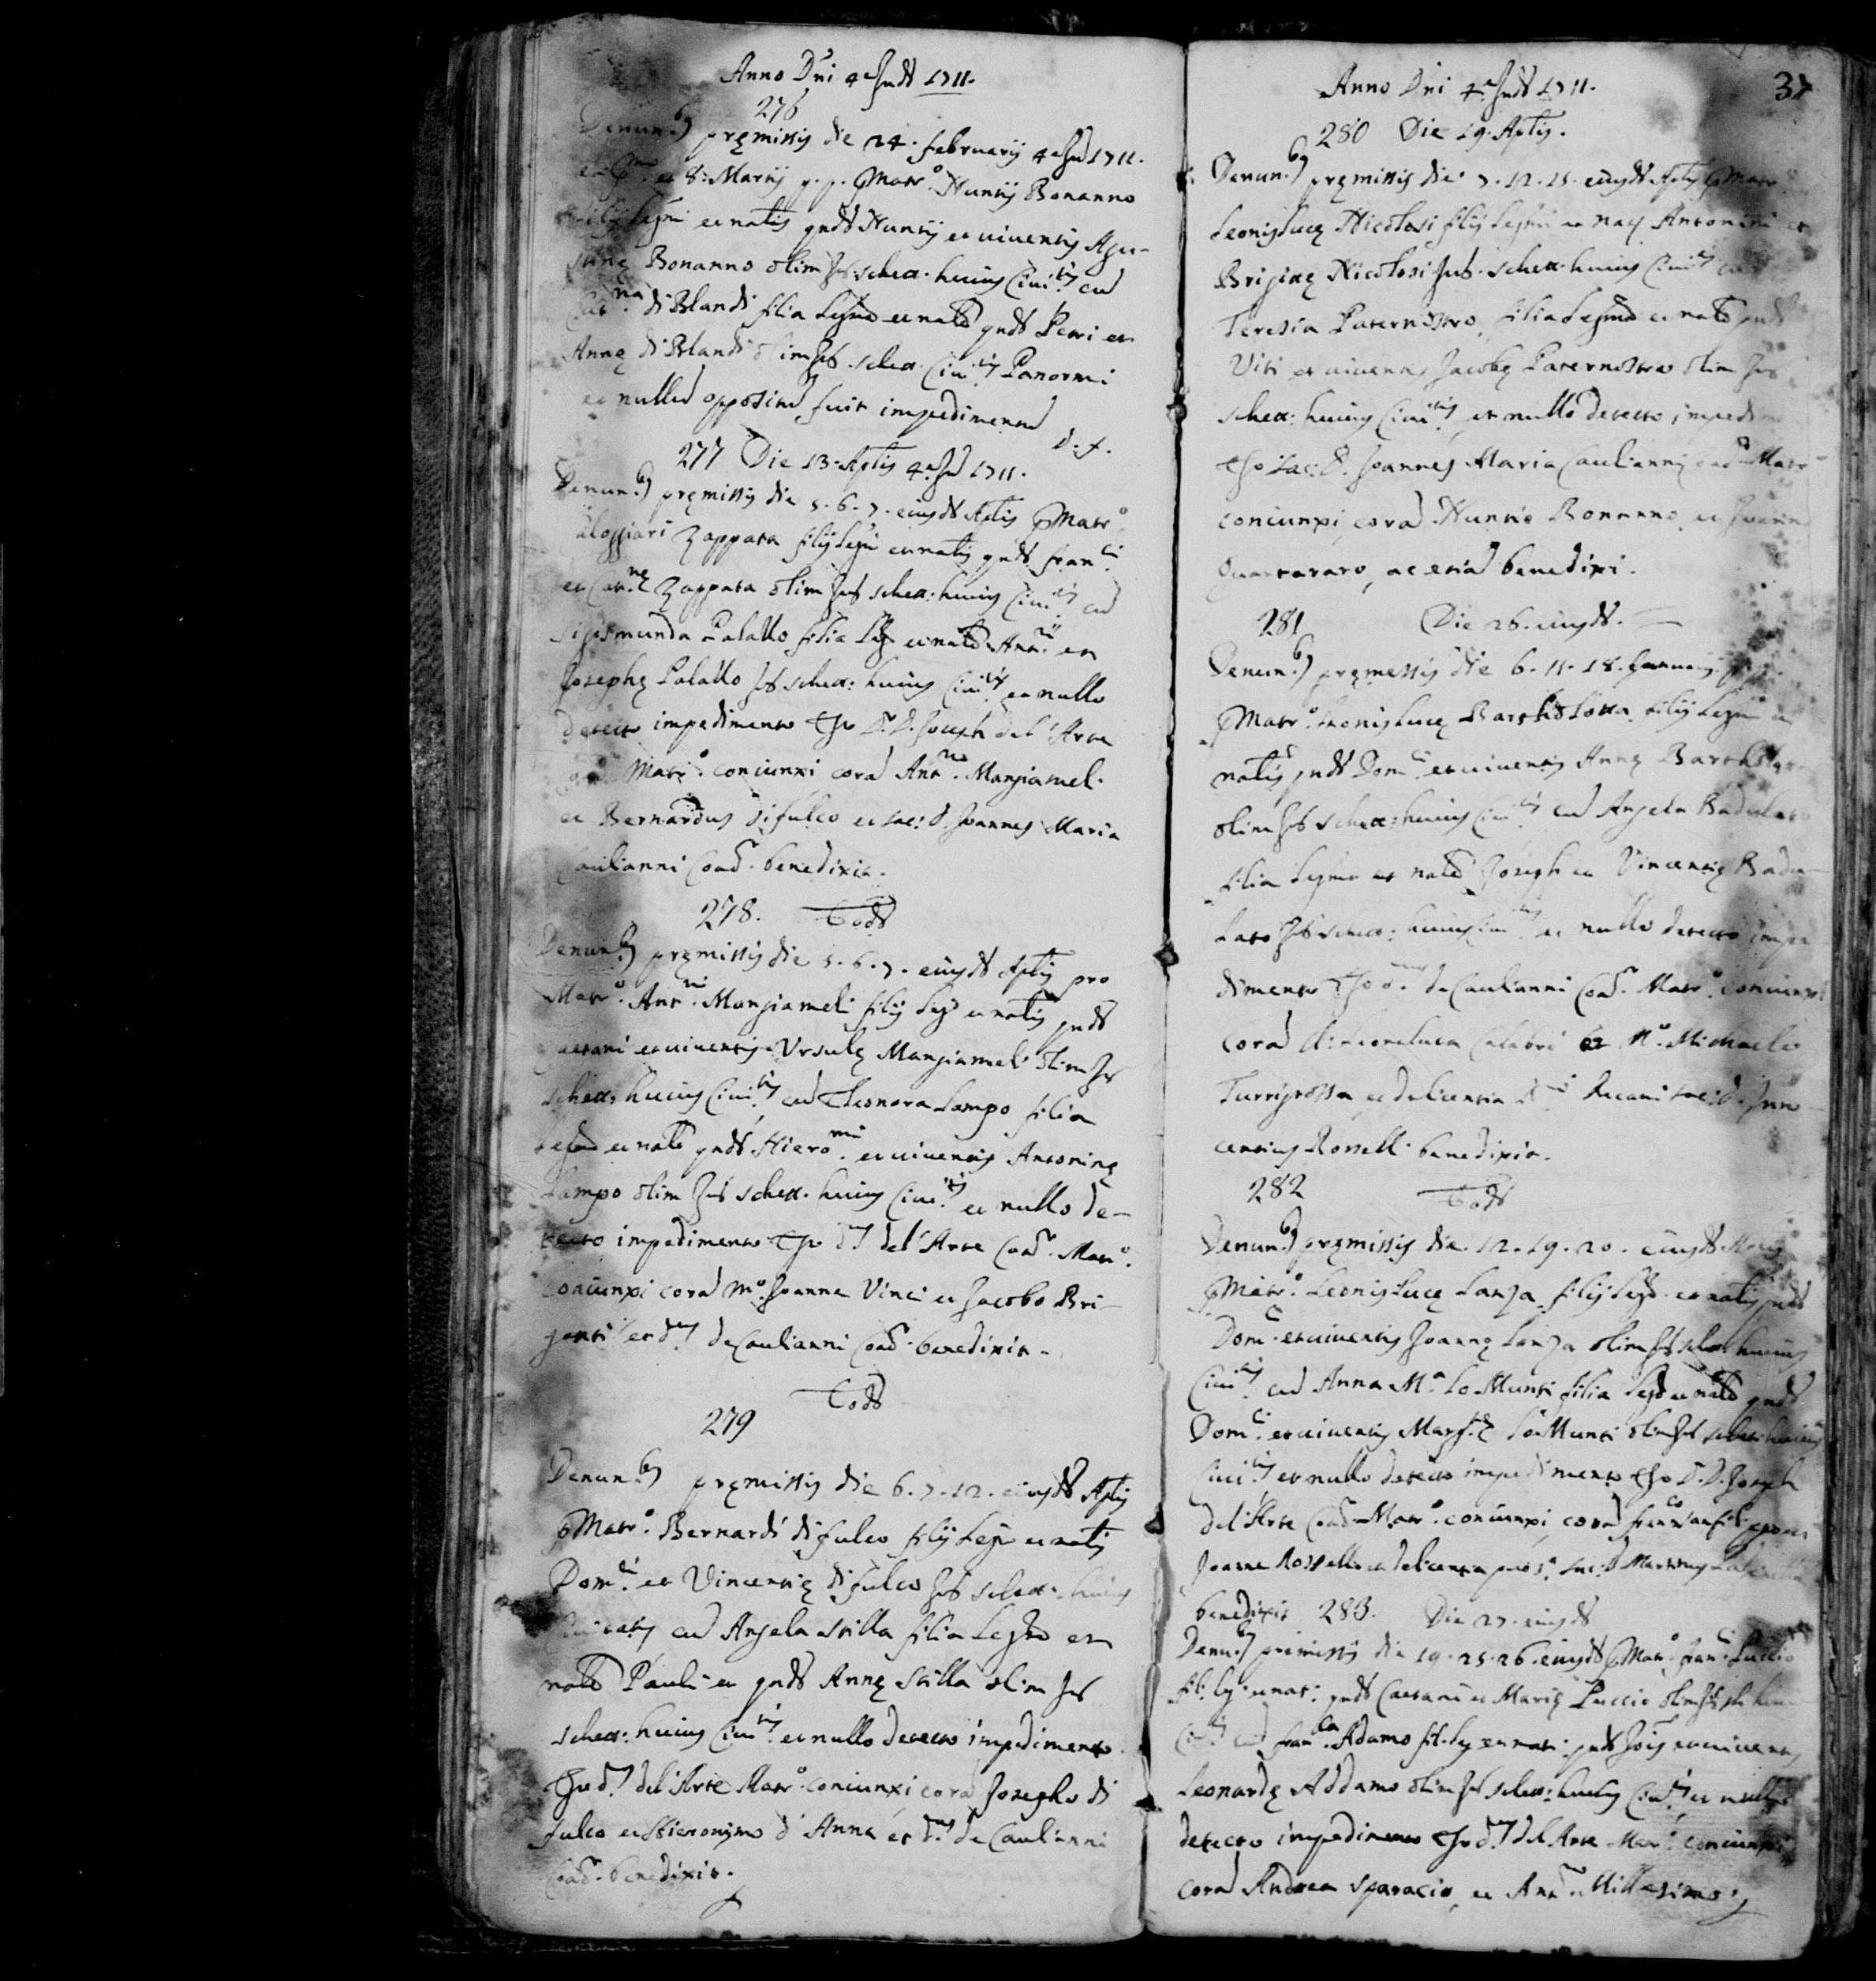 Anno Dñi 4ª Indᵉ 1711.
276
Denun.ᵇ⁹ pręmissis die 24. februarij 4ª Ind 1711.
et 8. Martij p. p. Matr.º Nuntij Bonanno
filij legmi et natis qndᵐ Nuntij et viventis Agu-
Bonanno olim Jug. schett. huius Civi.ᵗⁱˢ cu
Cat.ⁿᵃ di Blandi filia legma et nata qndᵐ Petri et
Annę di Blandi olim Jug. schett. Civi.ᵗⁱˢ Panormi
et nullu oppositu fuit impedimentu
D. f.
277 Die 13. Aplis 4ª Ind 1711.
Denun.ᵇ⁹ pręmissis die 5. 6. 7. eiusdᵐ Aplis p Matr.º
Caloggiari Zappata filij legmi et natis qndᵐ Fran.ᶜⁱ
et Cat.ⁿę Zappata olim Jug. schett: huius Civi.ᵗⁱˢ cu
Sigismunda Palallo filia leg. et nata Ant.ⁱʲ et
Josephę Palallo Jug. schett: huius Civi.ᵗⁱˢ et nullo
detecto impedimento Ego D. D. Joseph del'Arte
Matr.º coniunxi cora Ant.ⁿᵒ Mangiameli
et Bernardus di fulco et sac: D. Joannes Maria
Caulianni Coad. benedixit.
278. Eodᵐ
Denun.ᵇ⁹ pręmissis die 5. 6. 7. eiusdᵐ Aplis pro
Matr.º Ant.ⁿⁱ Mangiameli filij leg. et natis qndᵐ
Gaetani et viventis Ursulę Mangiameli olim Jug.
schett: huius Civi.ᵗⁱˢ cu Eleonora Lampo filia
legma et nata qndᵐ Hiero.ᵐⁱ et viventis Antoninę
Lampo olim Jug. schett. huius Civi.ᵗⁱˢ et nullo de-
tecto impedimento Ego d.ˢ del'Arte Coad. Matr.º
coniunxi cora M.º Joanne Vinci et Jacobo Bri-
ganti et d.ˢ de Caulianni Coad. benedixit.
Eodᵐ
279
Denun.ᵇ⁹ pręmissis die 6. 7. 12. eiusdᵐ Aplis
p Matr.º Bernardi di fulco filij legi et natis
Dom.ᶜⁱ et Vincentię di fulco Jug. schett. huius
Civitatis cu Angela Scilla filia legma et
nata Pauli et qndᵐ Annę Scilla olim Jug.
schett: huius Civi.ᵗⁱˢ et nullo detecto impedimento
Ego d.ˢ del'Arte Matr.º coniunxi cora Josepho di
fulco et Hieronymo d'Anna et d.ᵘˢ de Caulianni
Coad. benedixit.
Anno Dñi 4ª Indᵉ 1711.
37
280 Die 19. Aplis.
Denun.ᵇ⁹ pręmissis die 7. 12. 15. eiusdᵐ Aplis p Matr.
Leonis Lucę Nicolosi filij legmi et nati Antonini et
Brigitę Nicolosi Jug. schett. huius Civi.ᵗⁱˢ cu
Teresia Paternostro filia legma et nata qndᵐ
Viti et viventis Jacobę Paternostro olim Jug
schett: huius Civi.ᵗⁱˢ et nullo detecto impedim
Ego sac: D. Joannes Maria Caulianni Coad. Matr
coniunxi cora Nuntio Bonanno, et Joann
Quartararo, ac etia benedixi.
281 Die 26. eiusdᵐ.
Denun.ᵇ⁹ pręmessis die 6. 11. 18. Januarij
p Matr.º Leonis Lucę Bartholotta filij legmi et
natis qndᵐ Dom.ᶜⁱ et viventis Annę Bartholot
olim Jug schett: huius Civi.ᵗⁱˢ cu Angela Badulato
filia legma et nata Joseph et Vincentię Badu-
lato Jug schett: huius Civi.ᵗⁱˢ et nullo detecto impe
dimento Ego de Caulianni Coad. Matr.º coniunxi
cora Cl: Leoneluca Calabri et M.º Michaele
Turrigrossa, et de licentia Decani sac: D. Inno-
centius Rosselli benedixit.
282 Eodᵐ
Denun.ᵇ⁹ pręmissis die 12. 19. 20. eiusdᵐ Aplis
p Matr.º Leonis Lucę Lanza filij leg. et natis qndᵐ
Dom.ᶜⁱ et viventis Joannę Lanza olim Jug schett huius
Civi.ᵗⁱˢ cu Anna M.ª Lo Munti filia leg. et nata qndᵐ
Dom.ᶜⁱ et viventis Marg.ᵗę Lo Munti olim Jug schett: huius
Civi.ᵗⁱˢ et nullo detecto impedimento Ego D. D. Joseph
del'Arte Coad. Matr.º coniunxi cora
Joanne Rossello et de licentia sac. D. Martinus
benedixit 283. Die 27. eiusdᵐ
Denu.ᵇ⁹ pręmissis die 19. 25. 26. eiusdᵐ p Matr.º Fran.ᶜⁱ Puccio
fil: leg: et nat: qndᵐ Caetani et Marię Puccio olim Jug sch huius
Civ.ᵗⁱˢ cu Fran.ᶜᵃ Adamo fil: leg et nat: qndᵐ Jois et viventis
Leonardę Addamo olim Jug schett: huius Civi.ᵗⁱˢ et nullo
detecto impedimento Ego d.ˢ del Arte Matr.º coniunxi
cora Andrea Sparacio, et Ant.º Millesimo.